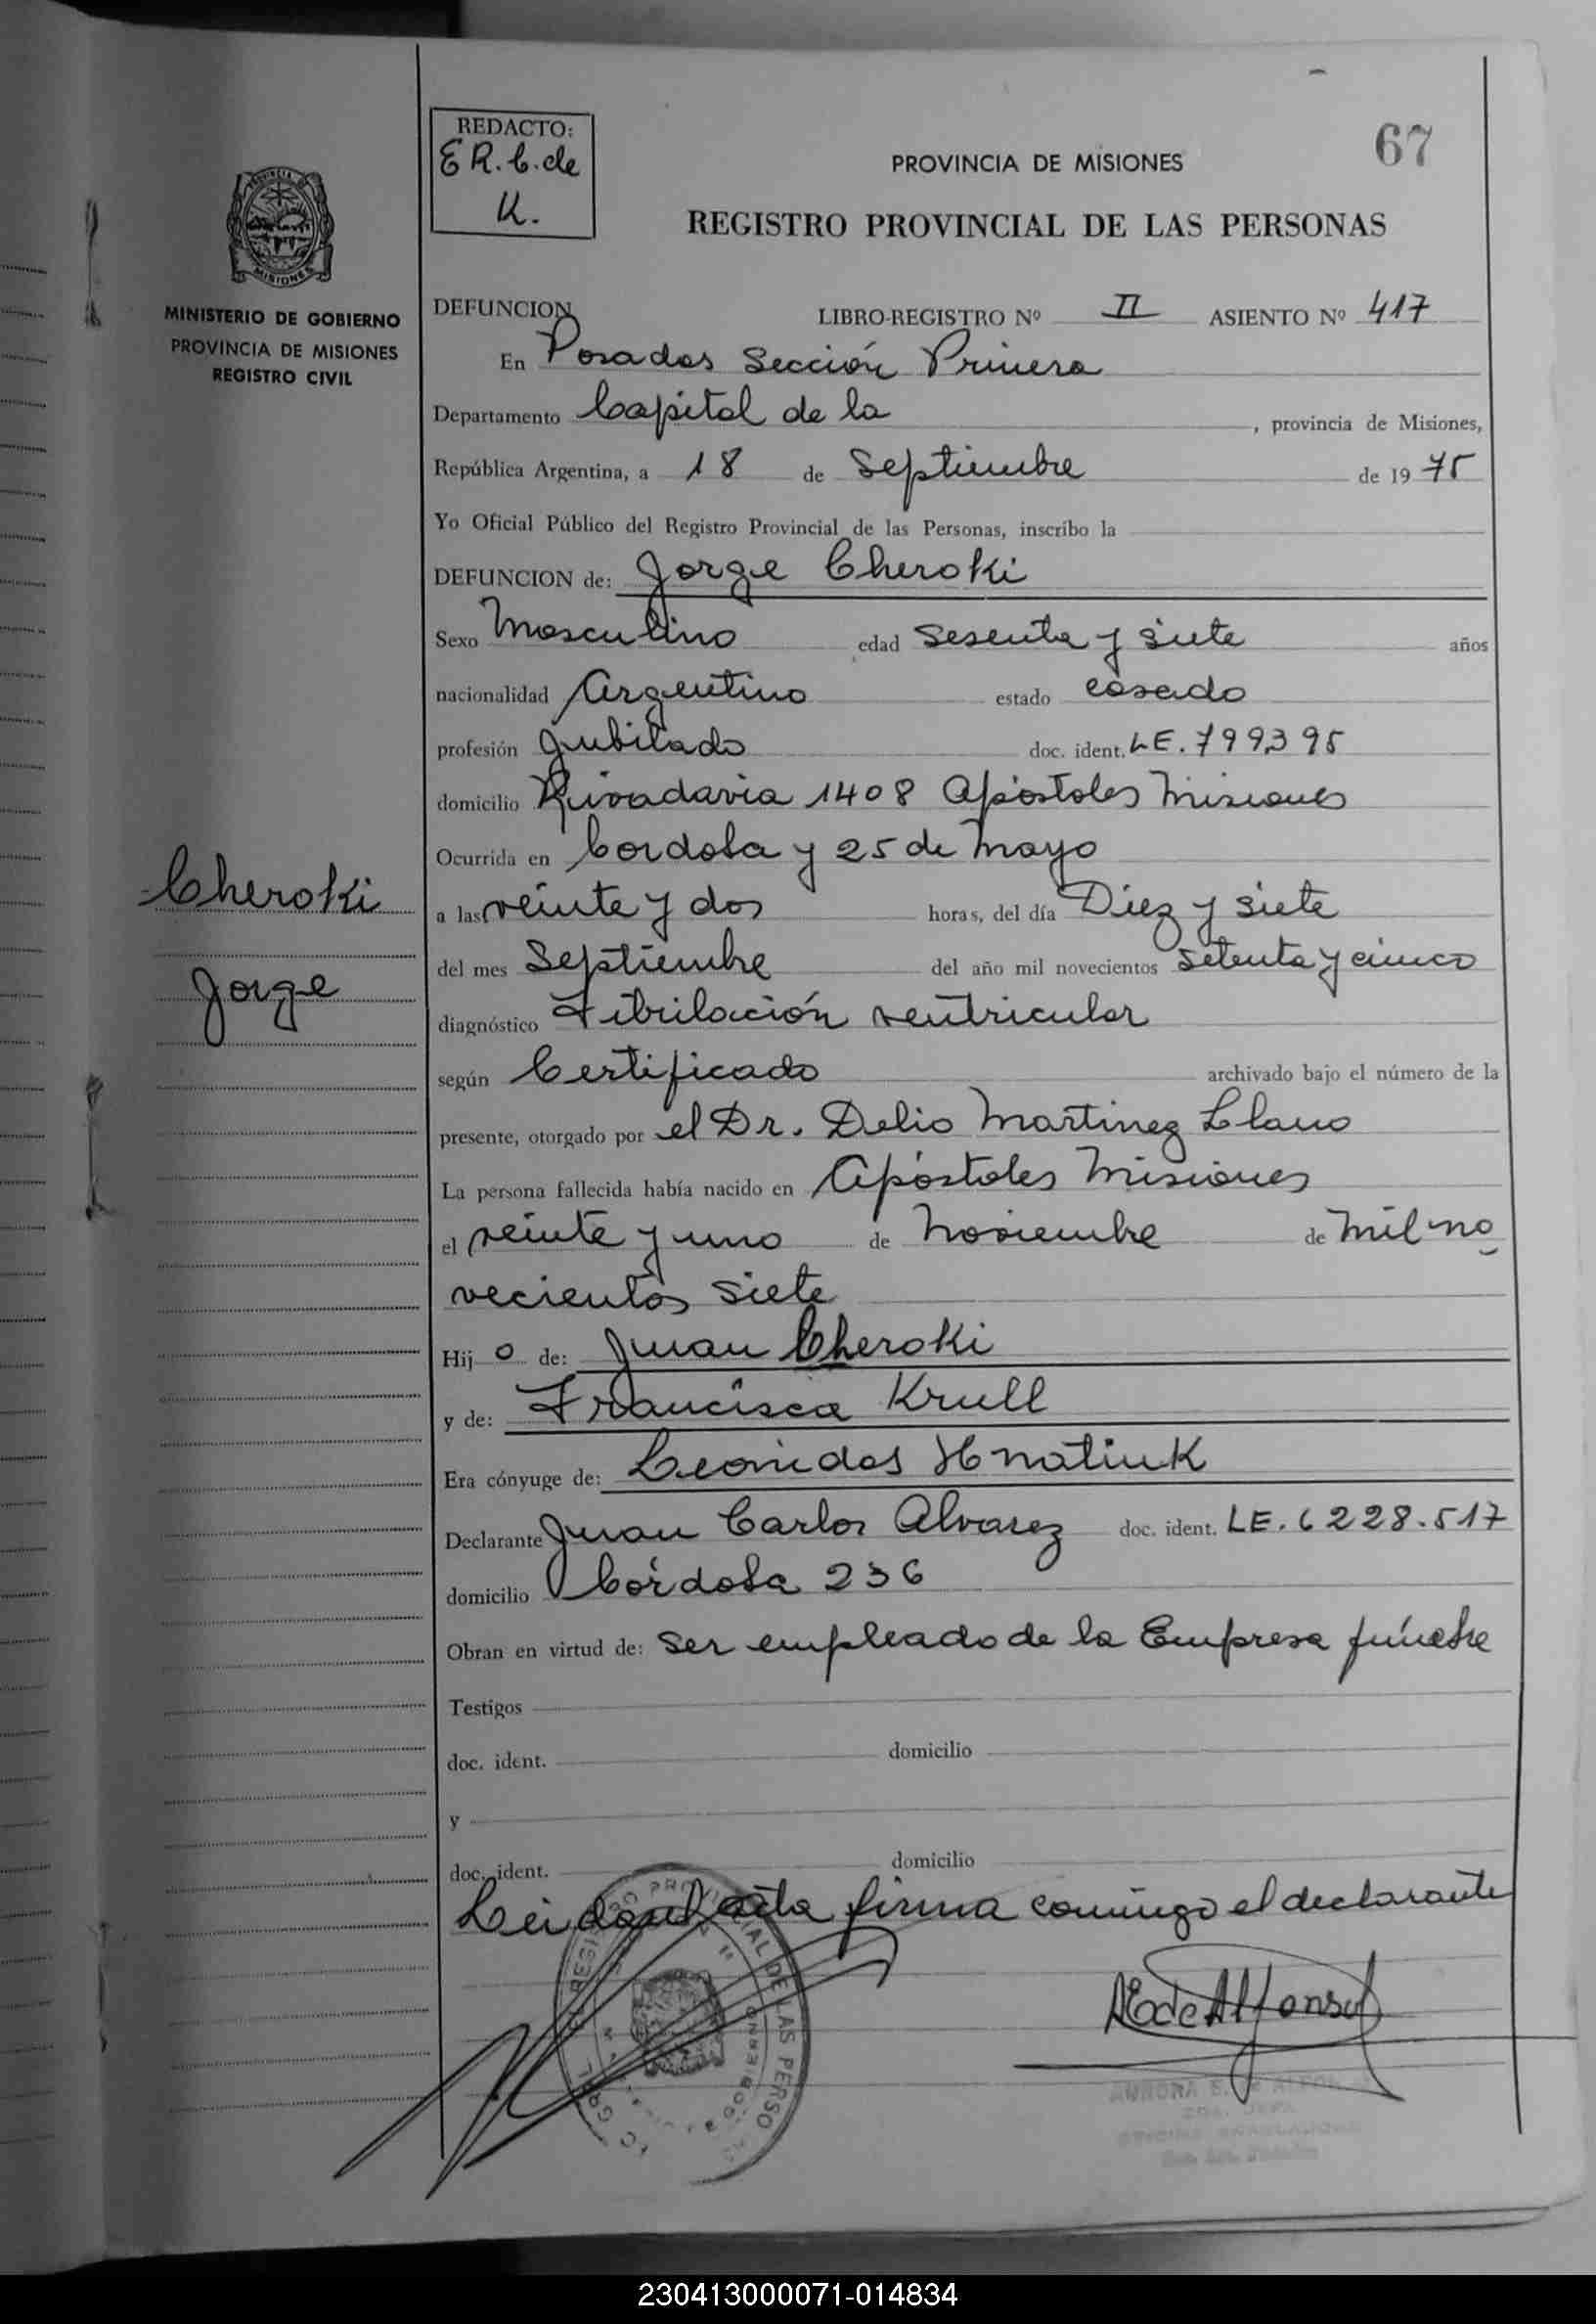 REDACTO:
E R. C. de
K.
67
PROVINCIA DE MISIONES
REGISTRO PROVINCIAL DE LAS PERSONAS
MISIONES
MINISTERIO DE GOBIERNO
PROVINCIA DE MISIONES
REGISTRO CIVIL
DEFUNCION LIBRO-REGISTRO Nº II ASIENTO Nº 417
En Posadas Sección Primera
Departamento Capital de la , provincia de Misiones,
República Argentina, a 18 de Septiembre de 1975
Yo Oficial Público del Registro Provincial de las Personas, inscribo la
DEFUNCION de: Jorge Cheroki
Sexo Masculino edad Sesenta y siete años
nacionalidad Argentino estado casado
profesión Jubilado doc. ident. LE. 799395
domicilio Rivadavia 1408 Apóstoles Misiones
Ocurrida en Cordoba y 25 de Mayo
Cheroki
Jorge
a las veinte y dos horas, del día Diez y siete
del mes Septiembre del año mil novecientos Setenta y cinco
diagnóstico Fibrilación ventricular
según Certificado archivado bajo el número de la
presente, otorgado por el Dr. Delio Martinez Llano
La persona fallecida había nacido en Apóstoles Misiones
el veinte y uno de Noviembre de Mil no
vecientos siete
Hijo de: Juan Cheroki
y de: Francisca Krull
Era cónyuge de: Leonidas Hnatiuk
Declarante Juan Carlos Alvarez doc. ident. LE. 6228.517
domicilio Córdoba 236
Obran en virtud de: Ser empleado de la Empresa fúnebre
Testigos
doc. ident. domicilio
y
doc. ident. domicilio
Leida el acta firma conmigo el declarante
REGISTRO PROVINCIAL DE LAS PERSO
AEdeAlfonso
230413000071-014834